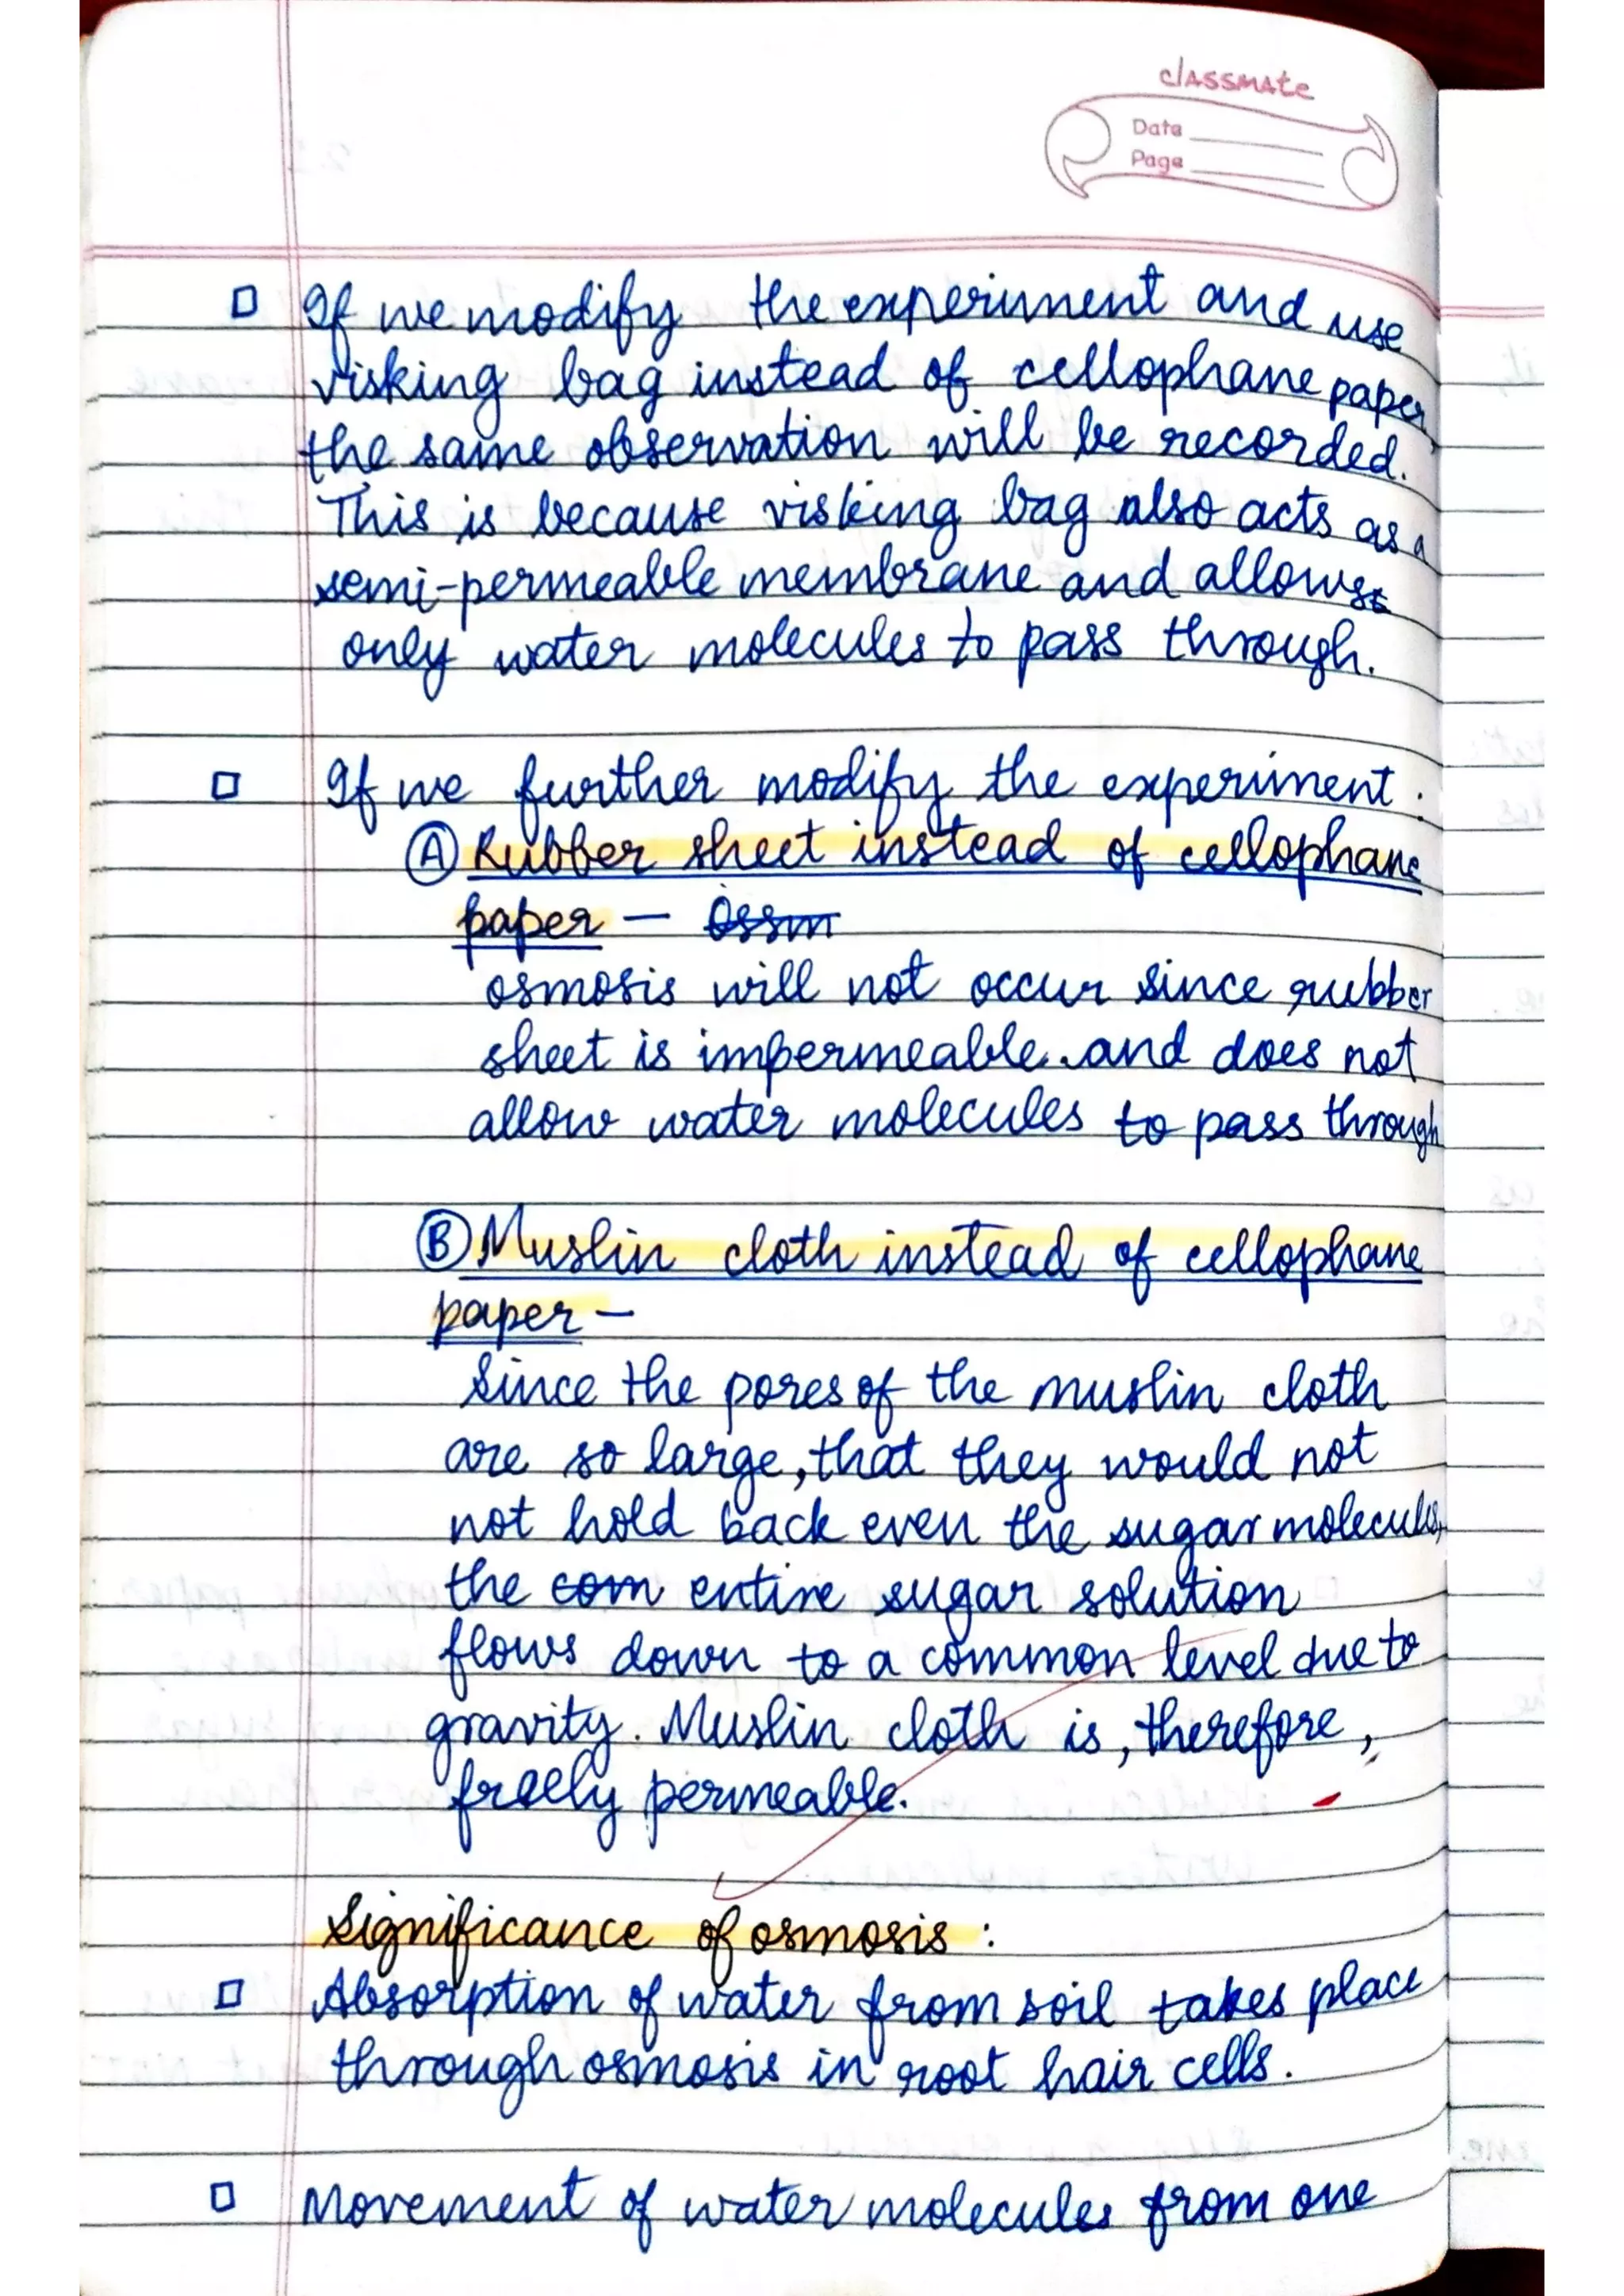 classmate
Date
Page
If we modify the experiment and use
visking bag instead of cellophane paper,
the same observation will be recorded.
This is because visking bag also acts as a
semi-permeable membrane and allows
only water molecules to pass through.
If we further modify the experiment :
(A) Rubber sheet instead of cellophane
paper - Ossm
osmosis will not occur since rubber
sheet is impermeable and does not
allow water molecules to pass through
(B) Muslin cloth instead of cellophane
paper -
Since the pores of the muslin cloth
are so large, that they would not
not hold back even the sugar molecules,
the com entire sugar solution
flows down to a common level due to
gravity. Muslin cloth is, therefore,
freely permeable.
Significance of osmosis :
Absorption of water from soil takes place
through osmosis in root hair cells.
Movement of water molecules from one